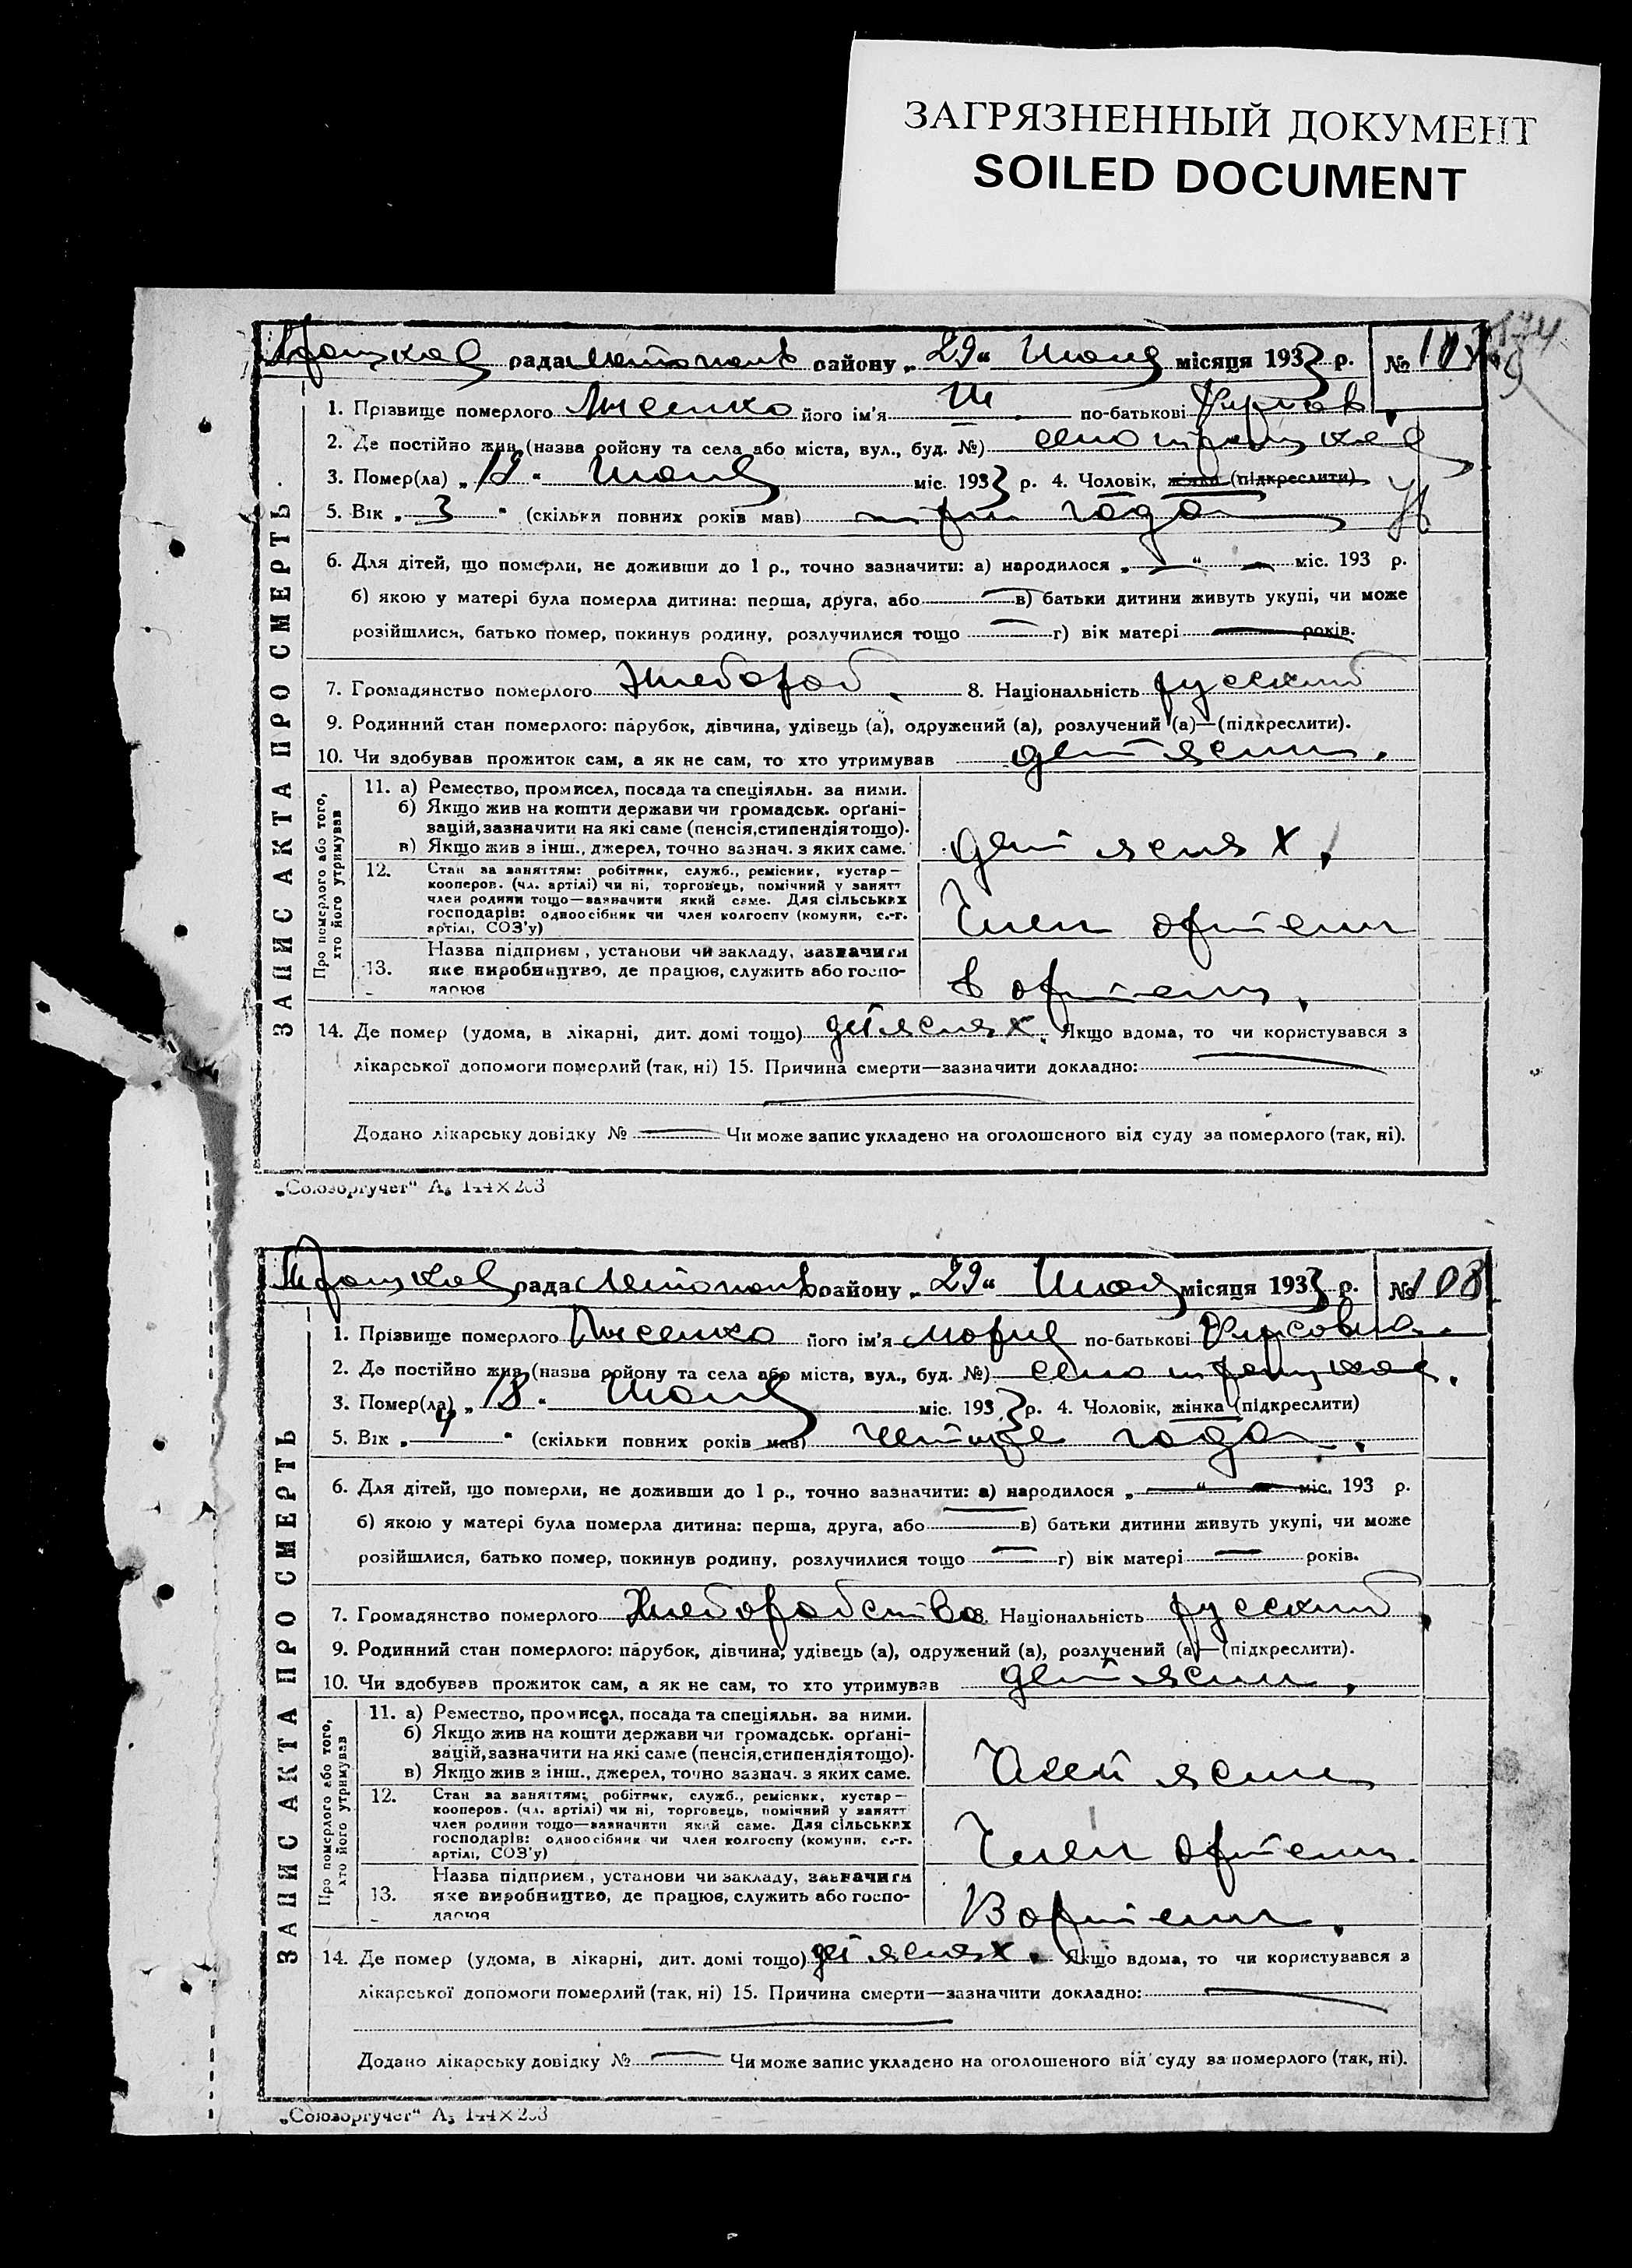 ЗАГРЯЗНЕННЫЙ ДОКУМЕНТ
SOILED DOCUMENT
рада району „29“ Июля місяця 1933 р. №
1. Прізвище померлого Лисенко його ім'я по-батькові
2. Де постійно жив (назва ройону та села або міста, вул., буд. №) село
3. Помер(ла) „18“ міс. 1933 р. 4. Чоловік, жінка (підкреслити)
5. Вік „3“ (скільки повних років мав) три года
6. Для дітей, що померли, не доживши до 1 р., точно зазначити: а) народилося „ “ міс. 193 р.
б) якою у матері була померла дитина: перша, друга, або в) батьки дитини живуть укупі, чи може
розійшлися, батько помер, покинув родину, розлучилися тощо г) вік матері років.
7. Громадянство померлого Хлебороб. 8. Національність русский
9. Родинний стан померлого: парубок, дівчина, удівець (а), одружений (а), розлучений (а)—(підкреслити).
10. Чи здобував прожиток сам, а як не сам, то хто утримував дет ясли.
ЗАПИС АКТА ПРО СМЕРТЬ
Про померлого або того,
хто його утримував
11. а) Ремество, промисел, посада та спеціяльн. за ними.
б) Якщо жив на кошти держави чи громадськ. орґані-
зацій, зазначити на які саме (пенсія, стипендія тощо).
в) Якщо жив з інш., джерел, точно зазнач. з яких саме.
дет яслях.
12. Стан за заняттям: робітник, служб., ремісник, кустар—
кооперов. (чл. артілі) чи ні, торговець, помічний у занятт
член родини тощо—зазначити який саме. Для сільських
господарів: одноосібник чи член колгоспу (комуни, с.-г.
артілі, СОЗ'у)
Член артели
13. Назва підприєм., установи чи закладу, зазначити
яке виробництво, де працює, служить або госпо-
дарює
в артели.
14. Де помер (удома, в лікарні, дит. домі тощо) дет яслях. Якщо вдома, то чи користувався з
лікарської допомоги померлий (так, ні) 15. Причина смерти—зазначити докладно:
Додано лікарську довідку № Чи може запис укладено на оголошеного від суду за померлого (так, ні).
„Союзоргучет“ А5 144×203
рада району „29“ Июля місяця 1933 р. №108
1. Прізвище померлого Лисенко його ім'я Мария по-батькові
2. Де постійно жив (назва ройону та села або міста, вул., буд. №) село
3. Помер(ла) „18“ міс. 1933 р. 4. Чоловік, жінка (підкреслити)
5. Вік „4“ (скільки повних років мав) четыре года.
6. Для дітей, що померли, не доживши до 1 р., точно зазначити: а) народилося „ “ міс. 193 р.
б) якою у матері була померла дитина: перша, друга, або в) батьки дитини живуть укупі, чи може
розійшлися, батько помер, покинув родину, розлучилися тощо г) вік матері років.
7. Громадянство померлого Хлеборобство 8. Національність русский
9. Родинний стан померлого: парубок, дівчина, удівець (а), одружений (а), розлучений (а)—(підкреслити).
10. Чи здобував прожиток сам, а як не сам, то хто утримував дет ясли.
ЗАПИС АКТА ПРО СМЕРТЬ
Про померлого або того,
хто його утримував
11. а) Ремество, промисел, посада та спеціяльн. за ними.
б) Якщо жив на кошти держави чи громадськ. орґані-
зацій, зазначити на які саме (пенсія, стипендія тощо).
в) Якщо жив з інш., джерел, точно зазнач. з яких саме.
ясли
12. Стан за заняттям: робітник, служб., ремісник, кустар—
кооперов. (чл. артілі) чи ні, торговець, помічний у занятт
член родини тощо—зазначити який саме. Для сільських
господарів: одноосібник чи член колгоспу (комуни, с.-г.
артілі, СОЗ'у)
Член артели.
13. Назва підприєм., установи чи закладу, зазначити
яке виробництво, де працює, служить або госпо-
дарює
В артели.
14. Де помер (удома, в лікарні, дит. домі тощо) дет яслях. Якщо вдома, то чи користувався з
лікарської допомоги померлий (так, ні) 15. Причина смерти—зазначити докладно:
Додано лікарську довідку № Чи може запис укладено на оголошеного від суду за померлого (так, ні).
„Союзоргучет“ А5 144×203